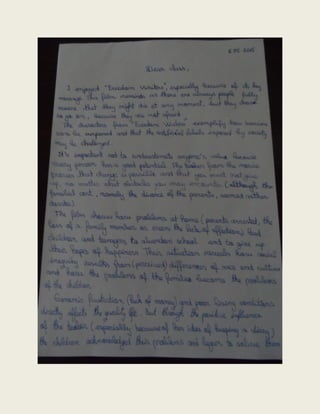 Dear Sirs,
I enjoyed "Freedom Writers", especially because of its key
message. This film reminds us there are always people fully
aware that they might die at any moment, but they choose
to go on, because they are not afraid.
The characters from "Freedom Writers" exemplify how barriers
can be surpassed and that the artificial labels imposed by society
may be challenged.
It's important not to underestimate anyone's value because
every person has a good potential. The teacher from the movie
proves that change is possible and that you must not give
up, no matter what obstacles you may encounter (although the
cost, namely the divorce of the parents, seemed rather
The film shows how problems at home (parents arrested, the
loss of a family member or even the lack of affection) lead
children and teenagers to abandon school and to give up
their hopes of happiness. Their situation reveals how social
inequity results from (perceived) differences of race and culture
and how the problems of the families become the problems
of the children.
Generic frustration (lack of money) and poor living conditions
directly affects the quality of life. But through the positive influence
of the teacher (especially because of her idea of keeping a diary)
the children acknowledged their problems and began to solve them